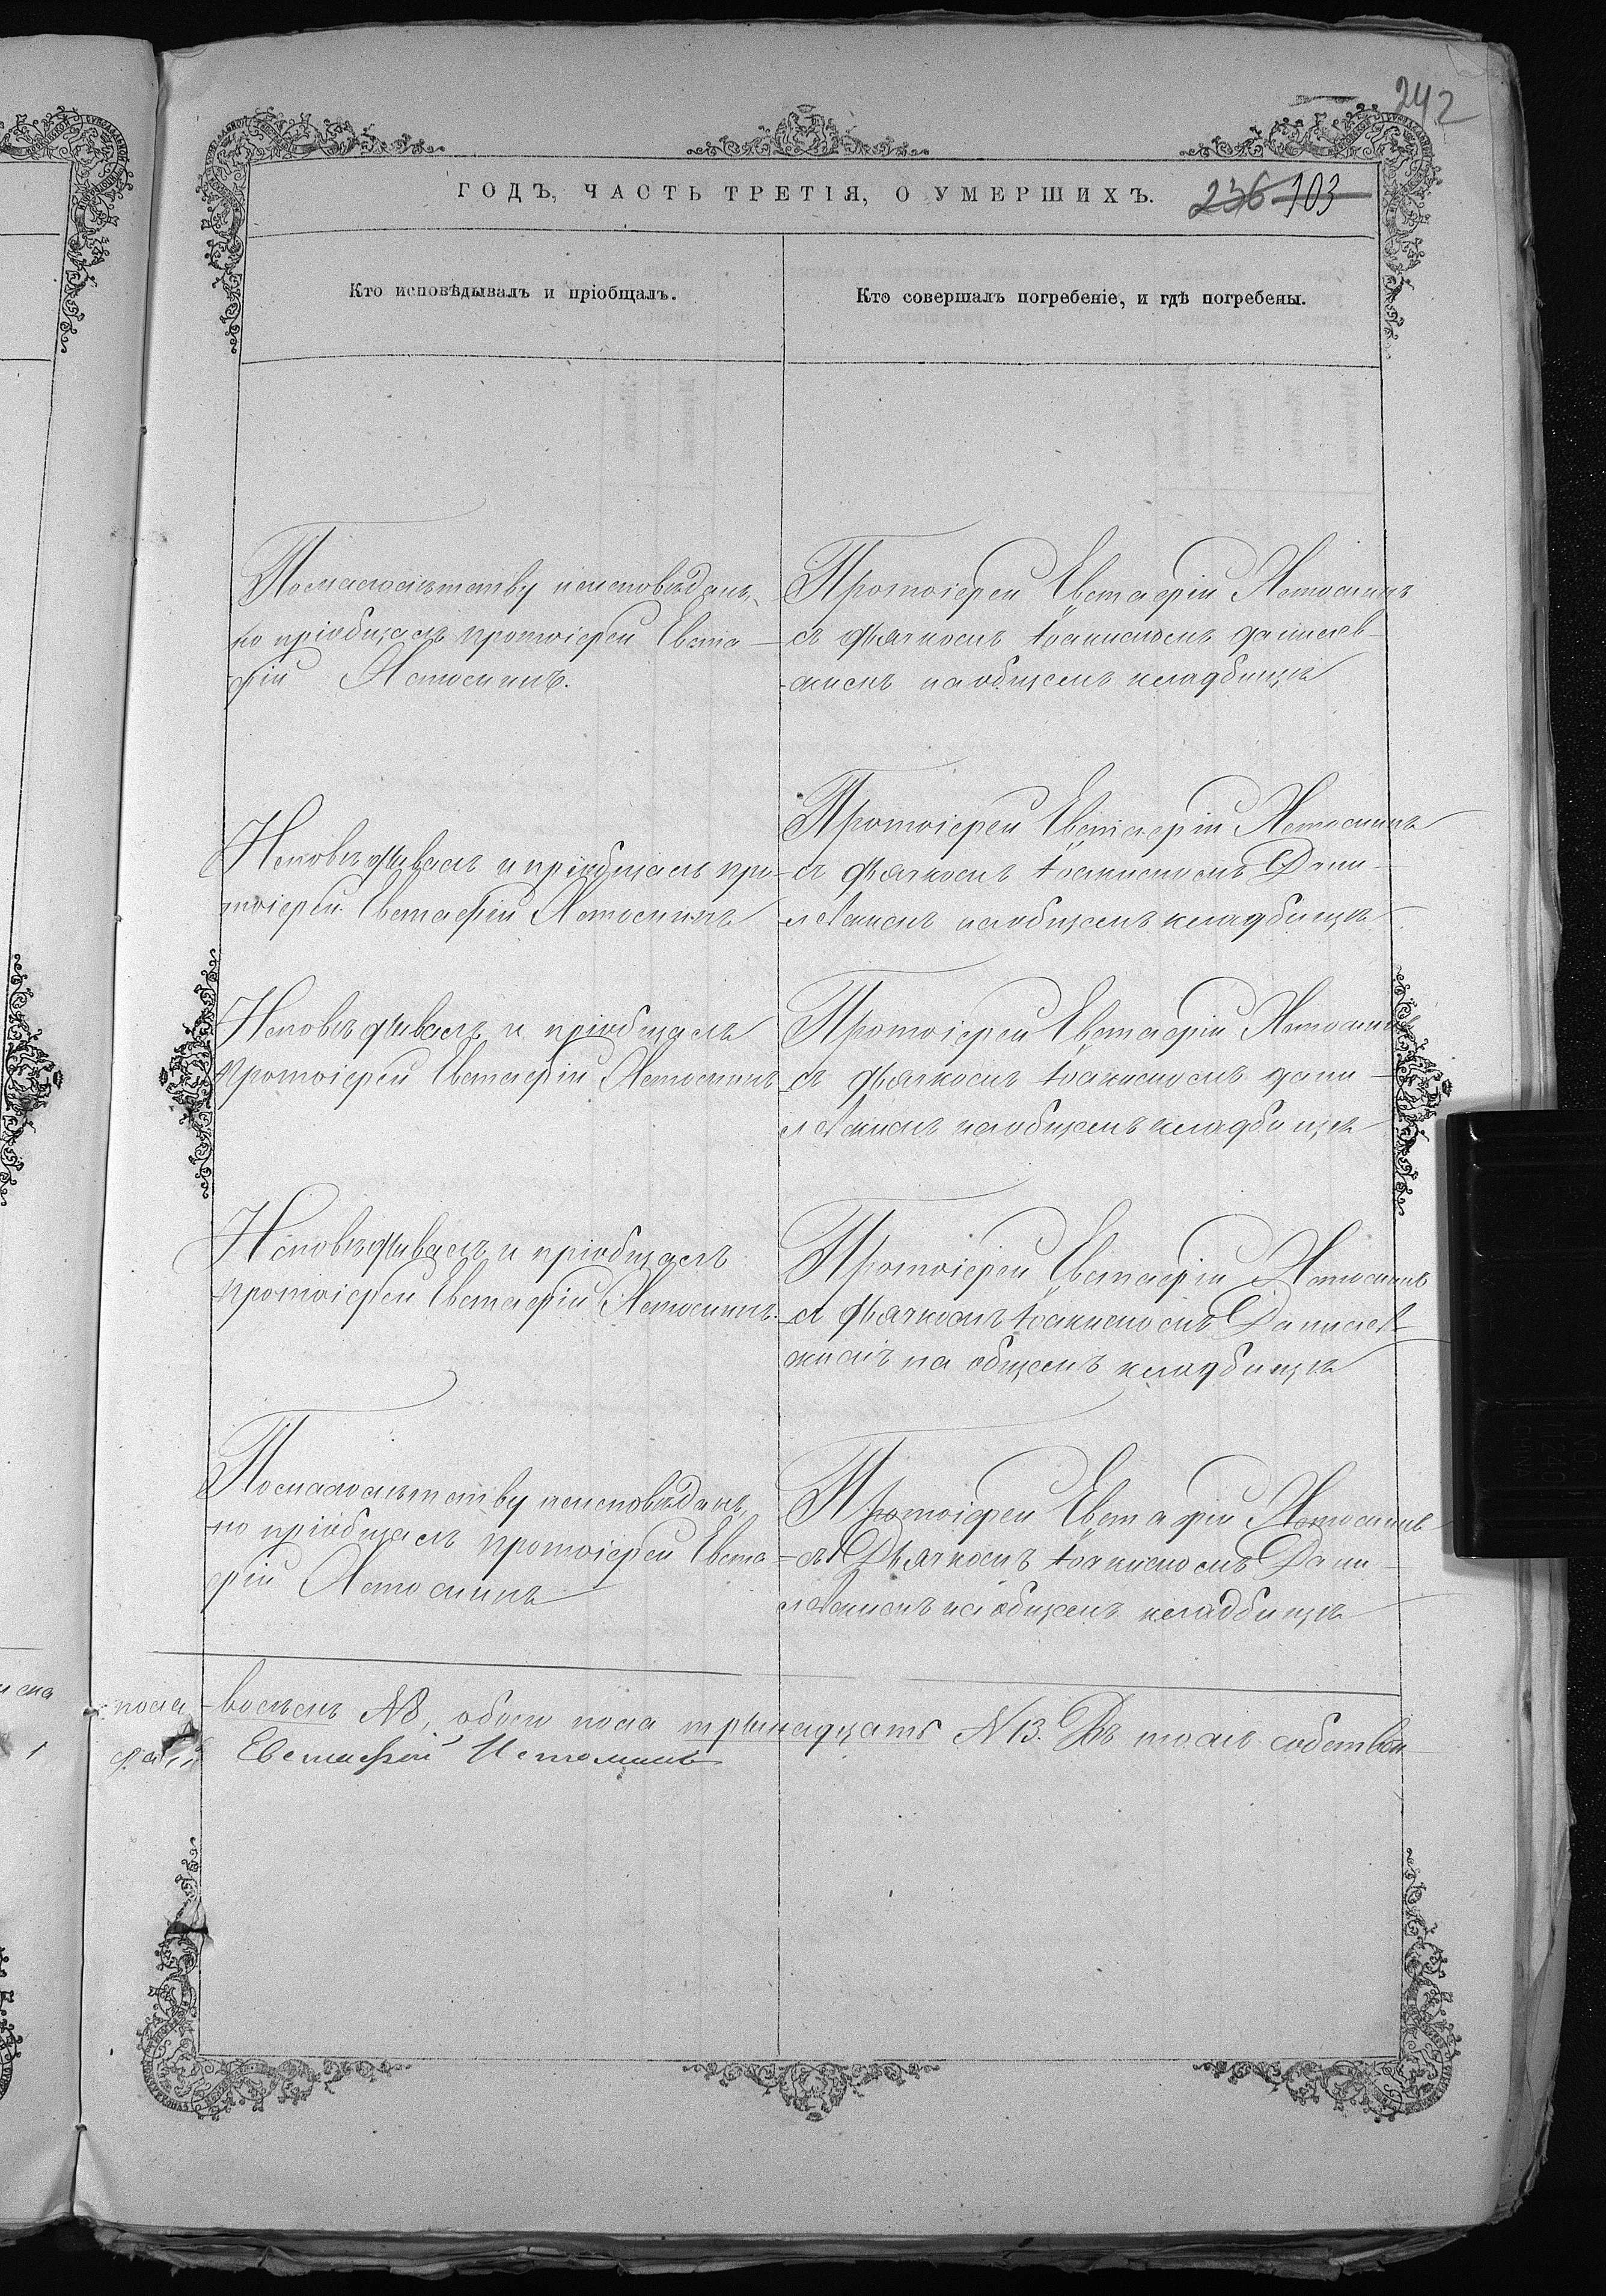 242
ГОДЪ, ЧАСТЬ ТРЕТІЯ, О УМЕРШИХЪ. 236 103
Кто исповѣдывалъ и пріобщалъ.
Кто совершалъ погребеніе, и гдѣ погребены.
По малолѣтству неисповѣданъ,
но пріобщалъ протоіерей Евста-
фій Истоминъ.
Протоіерей Евстафій Истоминъ
съ дьячкомъ Іоакимомъ Данилев-
скимъ на общемъ кладбищѣ
Исповѣдывалъ и пріобщалъ про-
тоіерей Евстафій Истоминъ
Протоіерей Евстафій Истоминъ
съ дьячкомъ Іоакимомъ Дани-
левскимъ на общемъ кладбищѣ
Исповѣдывалъ и пріобщалъ
протоіерей Евстафій Истоминъ
Протоіерей Евстафій Истоминъ
съ дьячкомъ Іоакимомъ Дани-
левскимъ на общемъ кладбищѣ
Исповѣдывалъ и пріобщалъ
протоіерей Евстафій Истоминъ.
Протоіерей Евстафій Истоминъ
съ дьячкомъ Іоакимомъ Данилев-
скимъ на общемъ кладбищѣ
По малолѣтству неисповѣданъ,
но пріобщалъ протоіерей Евста-
фій Истоминъ
Протоіерей Евстафій Истоминъ
съ Дьячкомъ Іоакимомъ Дани-
левскимъ на общемъ кладбищѣ
пола восемь №8, обоего пола тринадцать №13. Въ томъ собствен
Евстафій Истоминъ